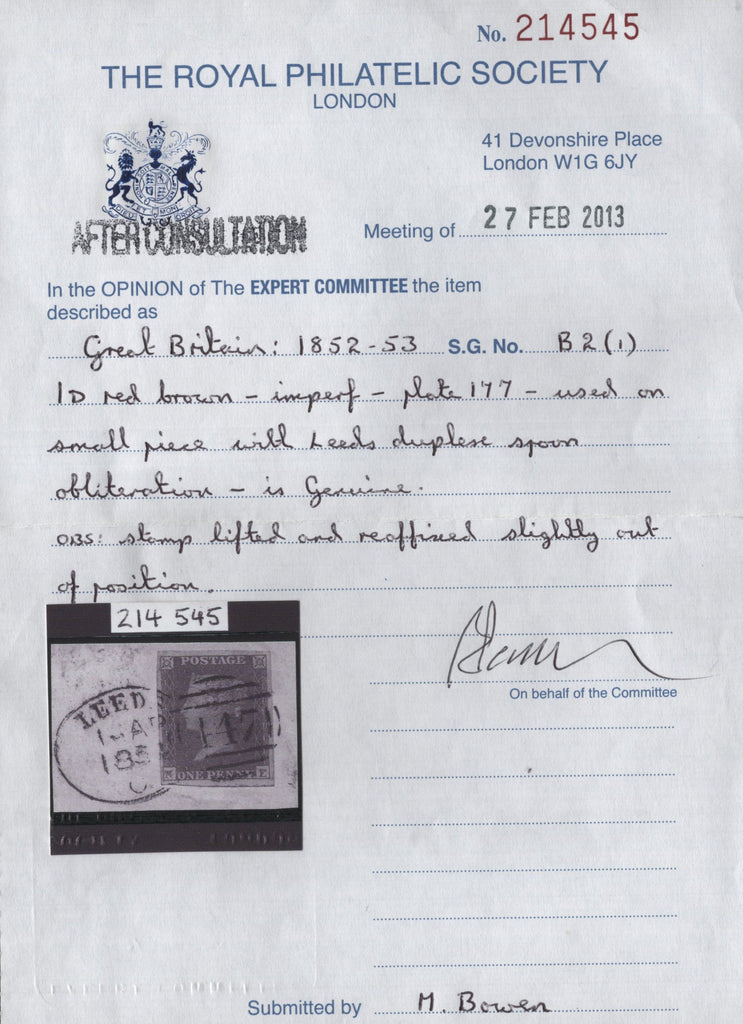 No. 214545
THE ROYAL PHILATELIC SOCIETY
LONDON
41 Devonshire Place
London W1G 6JY
AFTER CONSULTATION
Meeting of 27 FEB 2013
In the OPINION of The EXPERT COMMITTEE the item
described as
Great Britain: 1852-53 S.G. No. B2(1)
1D red brown - imperf - plate 177 - used on
small piece with Leeds duplex spoon
obliteration - is Genuine.
OBS: stamp lifted and reaffixed slightly out
of position.
214 545
POSTAGE
LEEDS
185
ONE PENNY
E
On behalf of the Committee
Submitted by M. Bowen